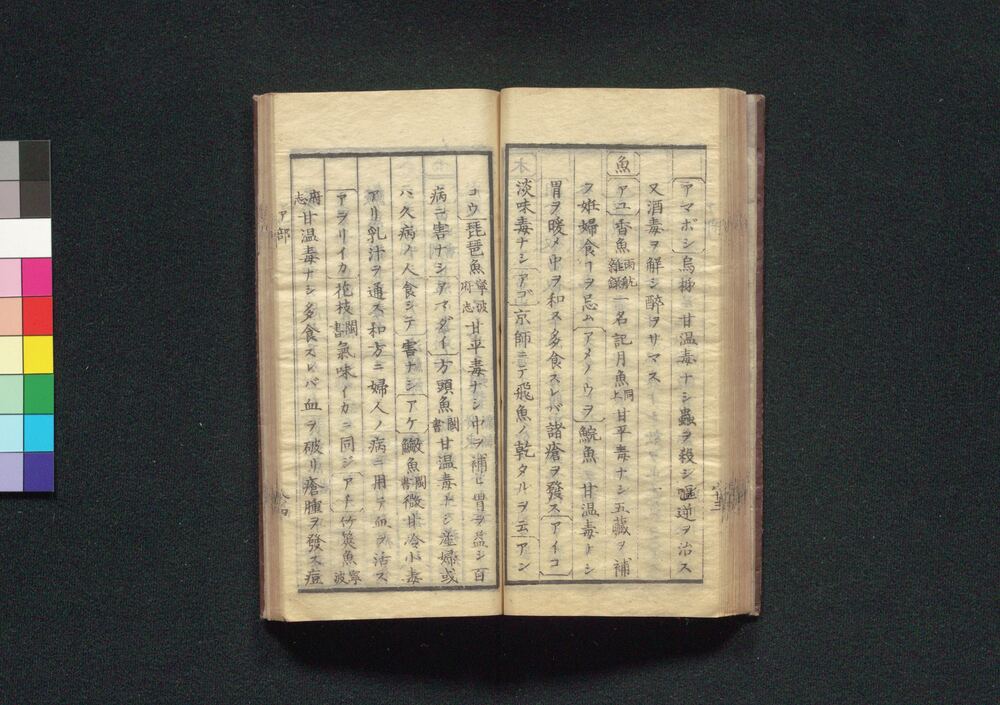 アマボシ 烏柹 甘温毒ナシ蟲ヲ殺シ嘔逆ヲ治ス
又酒毒ヲ解シ醉ヲサマス
魚 アユ 香魚 雨航雜録 一名記月魚 同上 甘平毒ナシ五藏ヲ補
フ妊婦食フヲ忌ム アメノウヲ 鯇魚 甘温毒ナシ
胃ヲ暖メ中ヲ和ス多食スレバ諸瘡ヲ發ス アイコ
淡味毒ナシ アゴ 京師ニテ飛魚ノ乾タルヲ云 アン
コウ 琵琶魚 寧波府志 甘平毒ナシ中ヲ補ヒ胃ヲ益シ百
病ニ害ナシ アマダイ 方頭魚 閩書 甘温毒ナシ產婦或
ハ久病ノ人食シテ害ナシ アケ 鱖魚 閩書 微甘冷小毒
アリ乳汁ヲ通ス和方ニ婦人ノ病ニ用テ血ヲ活ス
アヲリイカ 花枝 閩書 氣味イカニ同ジ アナ 魚 寧波
府志 甘温毒ナシ多食スレバ血ヲ破リ瘡腫ヲ發ス痘
ア部